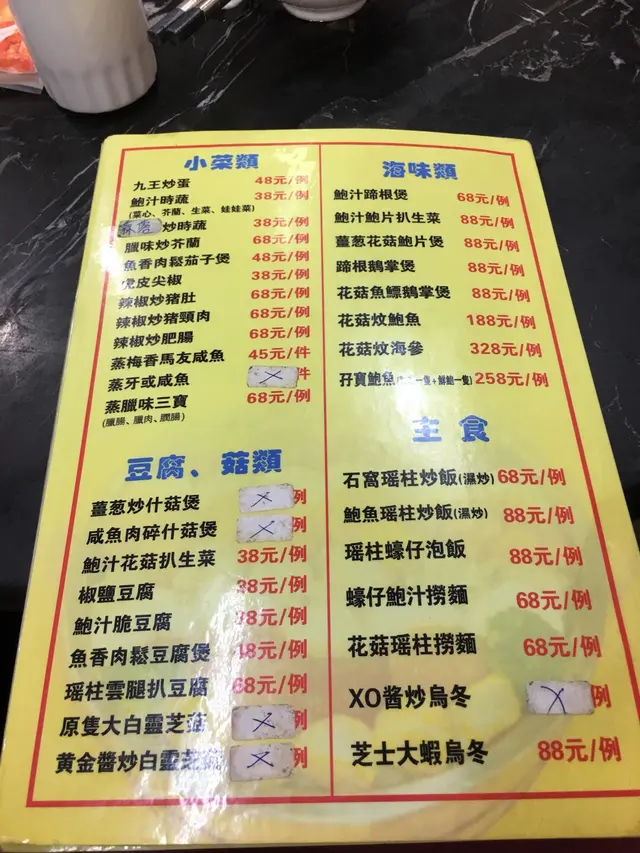 小菜類
九王炒蛋 48元/例
鮑汁時蔬 38元/例
(菜心、芥蘭、生菜、娃娃菜)
炒時蔬 38元/例
臘味炒芥蘭 68元/例
魚香肉鬆茄子煲 48元/例
虎皮尖椒 38元/例
辣椒炒豬肚 68元/例
辣椒炒猪頸肉 68元/例
辣椒炒肥腸 68元/例
蒸梅香馬友咸魚 45元/件
蒸牙或咸魚 X 件
蒸臘味三寶 68元/例
(臘腸、臘肉、潤腸)
豆腐、菇類
薑葱炒什菇煲 X 例
咸魚肉碎什菇煲 X 例
鮑汁花菇扒生菜 38元/例
椒鹽豆腐 38元/例
鮑汁脆豆腐 38元/例
魚香肉鬆豆腐煲 48元/例
瑶柱雲腿扒豆腐 68元/例
原隻大白靈芝菇 X 例
黄金醬炒白靈芝菇 X 例
海味類
鮑汁蹄根煲 68元/例
鮑汁鮑片扒生菜 88元/例
薑葱花菇鮑片煲 88元/例
蹄根鵝掌煲 88元/例
花菇魚鰾鵝掌煲 88元/例
花菇炆鮑魚 188元/例
花菇炆海參 328元/例
孖寶鮑魚 一隻+鮮鮑一隻) 258元/例
主食
石窩瑶柱炒飯(濕炒) 68元/例
鮑魚瑶柱炒飯(濕炒) 88元/例
瑶柱蠔仔泡飯 88元/例
蠔仔鮑汁撈麵 68元/例
花菇瑶柱撈麵 68元/例
XO酱炒烏冬 X 例
芝士大蝦烏冬 88元/例